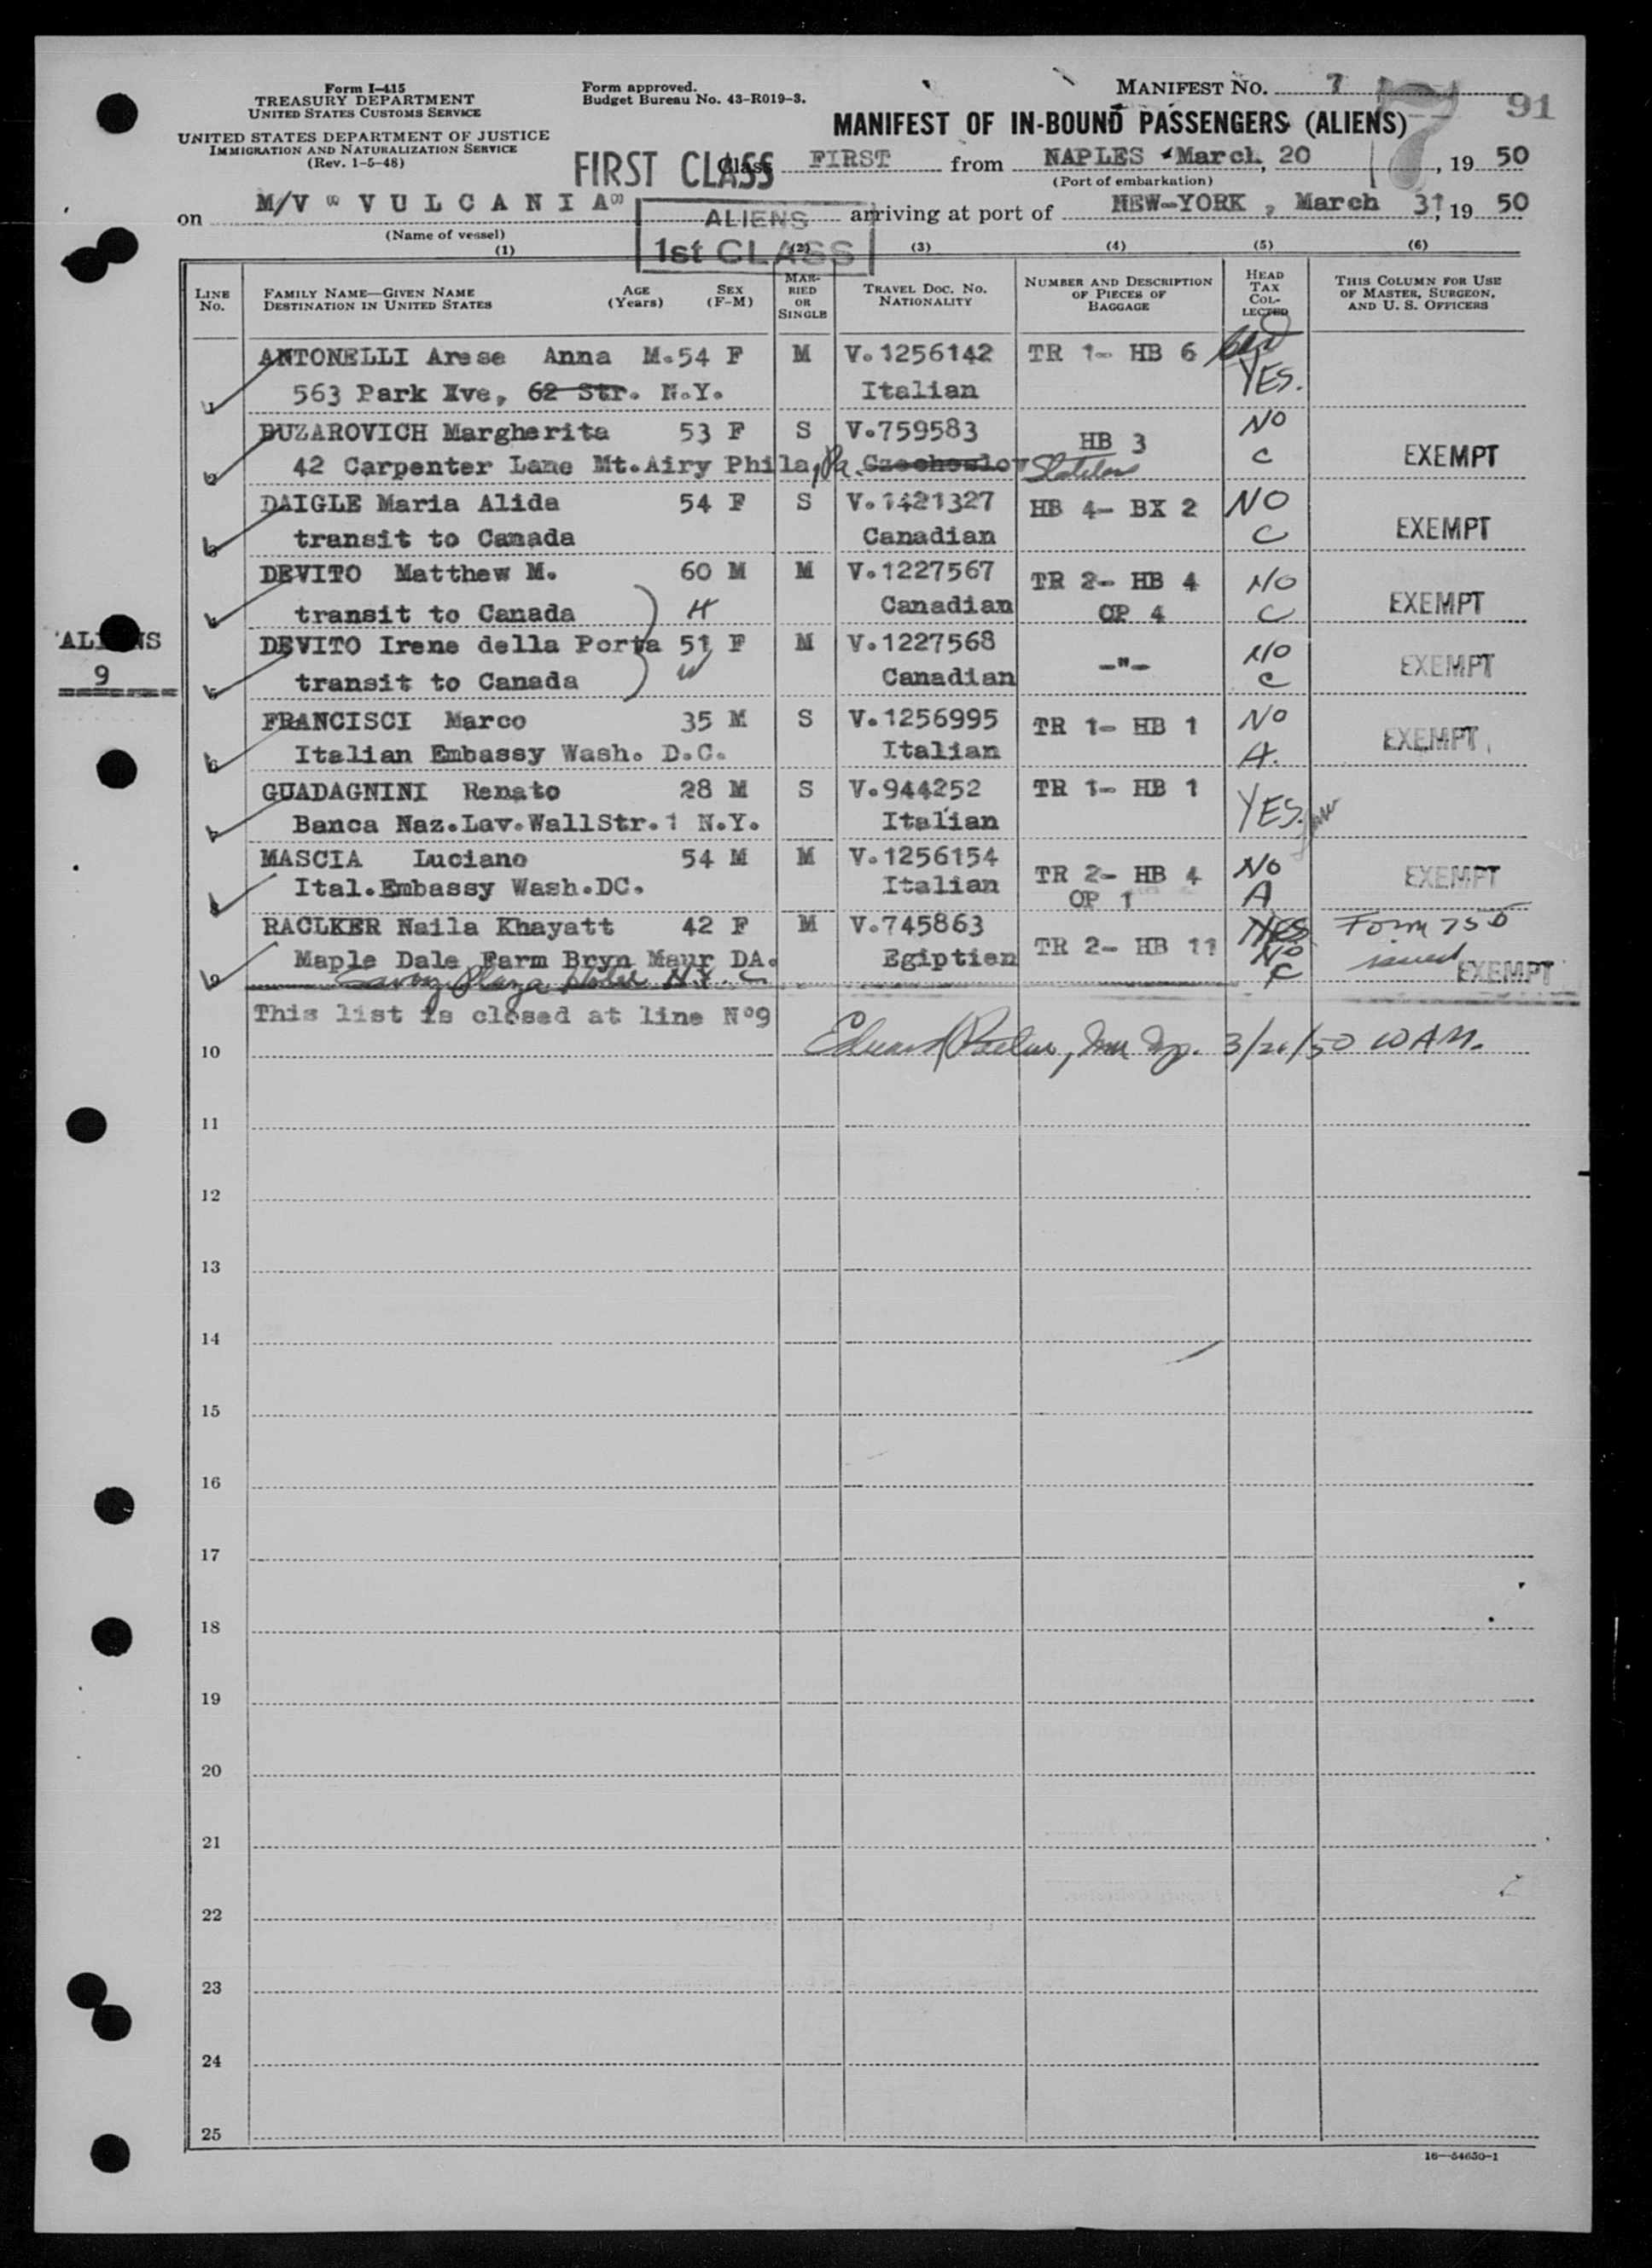 Form I-415
TREASURY DEPARTMENT
UNITED STATES CUSTOMS SERVICE
UNITED STATES DEPARTMENT OF JUSTICE
IMMIGRATION AND NATURALIZATION SERVICE
(Rev. 1-5-48)
Form approved.
Budget Bureau No. 43-R019-3.
MANIFEST NO. 7
7
91
MANIFEST OF IN-BOUND PASSENGERS (ALIENS)
FIRST CLASS
Class FIRST from NAPLES March, 20, 19 50
(Port of embarkation)
on M/V " V U L C A N I A"
ALIENS
1st CLASS
arriving at port of NEW-YORK, March 31, 19 50
(Name of vessel)
(1) (2) (3) (4) (5) (6)
LINE No.
FAMILY NAME—GIVEN NAME
DESTINATION IN UNITED STATES
AGE (Years)
SEX (F-M)
MARRIED OR SINGLE
TRAVEL DOC. NO.
NATIONALITY
NUMBER AND DESCRIPTION OF PIECES OF BAGGAGE
HEAD TAX COLLECTED
THIS COLUMN FOR USE OF MASTER, SURGEON, AND U. S. OFFICERS
ANTONELLI Arese Anna M.54 F M V.1256142 TR 1- HB 6
1 563 Park Ave, 62 Str. N.Y. Italian YES.
BUZAROVICH Margherita 53 F S V.759583 HB 3 NO
2 42 Carpenter Lane Mt.Airy Phila, Pa. Czechoslov Stateless C EXEMPT
DAIGLE Maria Alida 54 F S V.1421327 HB 4- BX 2 NO
3 transit to Canada Canadian C EXEMPT
DEVITO Matthew M. 60 M M V.1227567 TR 2- HB 4 NO
4 transit to Canada H Canadian OP 4 C EXEMPT
DEVITO Irene della Porta 51 F M V.1227568 -"- NO
5 transit to Canada W Canadian C EXEMPT
ALIENS
9
FRANCISCI Marco 35 M S V.1256995 TR 1- HB 1 NO
6 Italian Embassy Wash. D.C. Italian A. EXEMPT
GUADAGNINI Renato 28 M S V.944252 TR 1- HB 1
7 Banca Naz.Lav.WallStr.1 N.Y. Italian YES.
MASCIA Luciano 54 M M V.1256154 TR 2- HB 4 NO
8 Ital.Embassy Wash.DC. Italian OP 1 A EXEMPT
RACLKER Naila Khayatt 42 F M V.745863 TR 2- HB 11 YES Form 755
9 Maple Dale Farm Bryn Maur DA. Egiptien NO issued
Savoy Plaza Hotel N.Y. C C EXEMPT
This list is closed at line N°9
10 3/20/50 10 AM.
11
12
13
14
15
16
17
18
19
20
21
22
23
24
25
16—54650-1